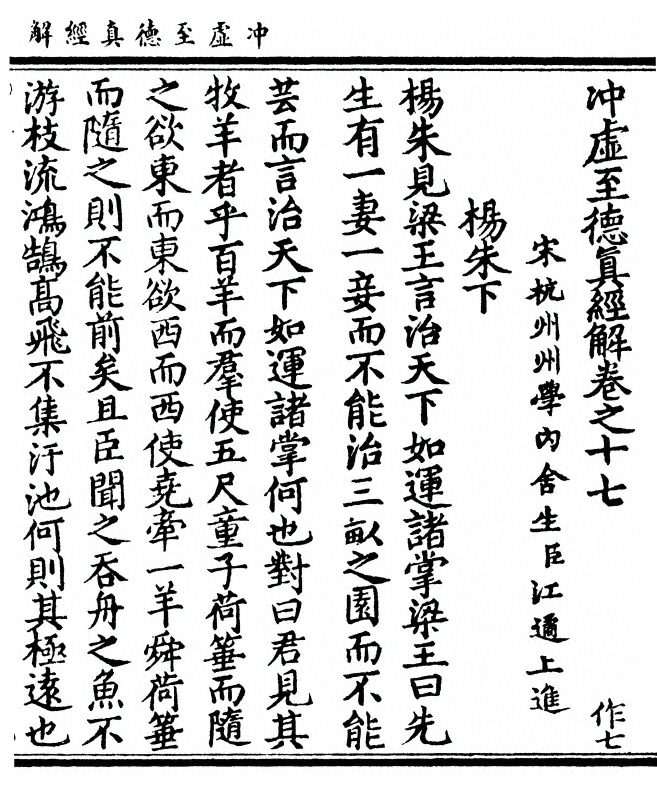 冲虛至德真經解
冲虛至德眞經解卷之十七
作七
宋杭州州學內舍生臣江遹上進
楊朱下
楊朱見梁王言治天下如運諸掌梁王曰先
生有一妻一妾而不能治三畝之園而不能
芸而言治天下如運諸掌何也對曰君見其
牧羊者乎百羊而羣使五尺童子荷箠而隨
之欲東而東欲西而西使堯牽一羊舜荷箠
而隨之則不能前矣且臣聞之吞舟之魚不
游枝流鴻鵠高飛不集汙池何則其極遠也